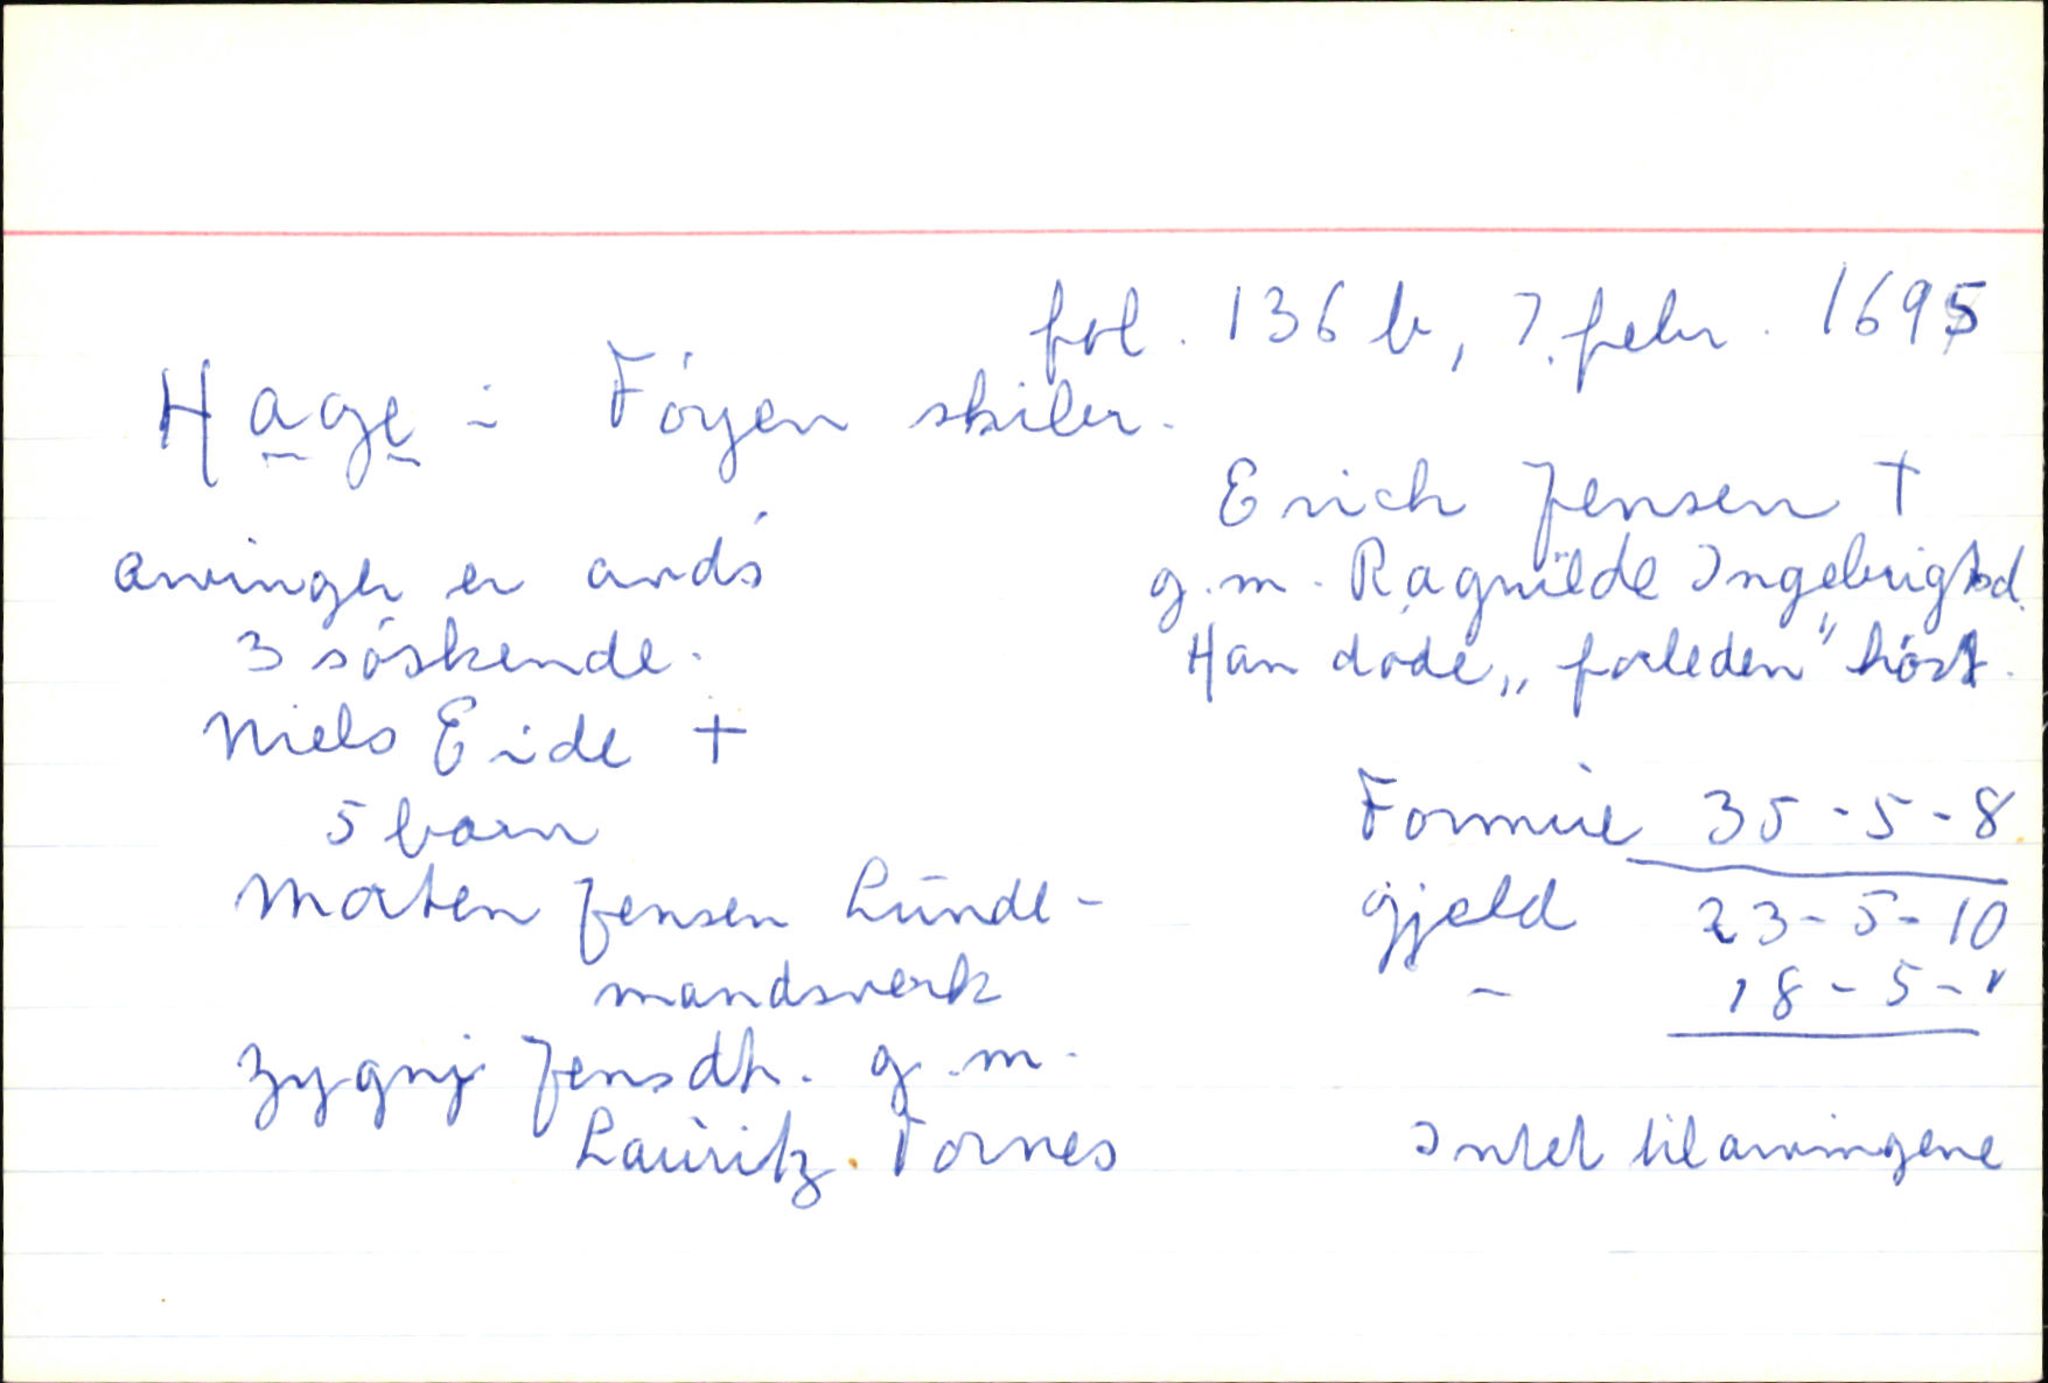 fol. 136 b, 7. febr. 1695
Hage i Föyen skiber.
Erich Jensen †
g.m. Ragnilde Ingebrigtsd.
Han døde „forleden" höst.
arvinger er avds
3 söskende.
Niels Eide †
5 barn
Morten Jensen Lunde-
mandsverk
Zygnj Jensdh. g.m.
Lauritz Tornes
Formue 35-5-8
gjeld 23-5-10
- 18-5-"
Intet til arvingene